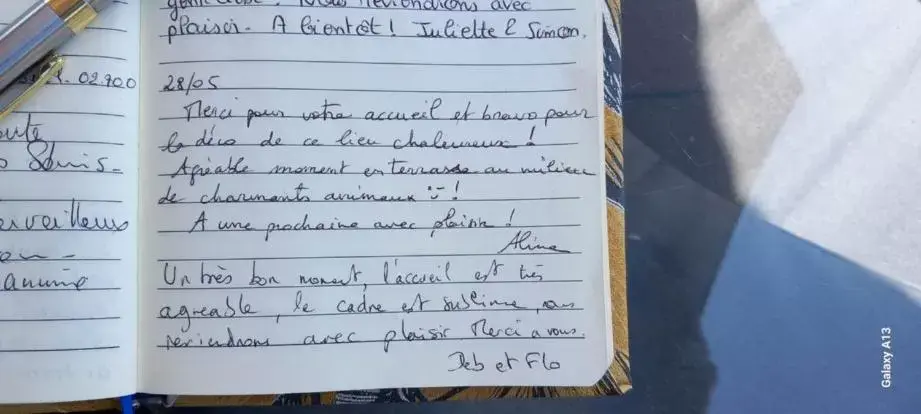 02.900
oute
Sonis-
erveilleux
on -
anime
Nous reviendrons avec
plaisir. A bientôt ! Juliette & Simon.
28/05
Merci pour votre accueil et bravo pour
la déco de ce lieu chaleureux !
Agréable moment en terrasse au milieu
de charmants animaux :-) !
A une prochaine avec plaisir !
Aline
Un très bon moment, l'accueil est très
agréable, le cadre est sublime, on
reviendrons avec plaisir. Merci a vous.
Deb et Flo
Galaxy A13